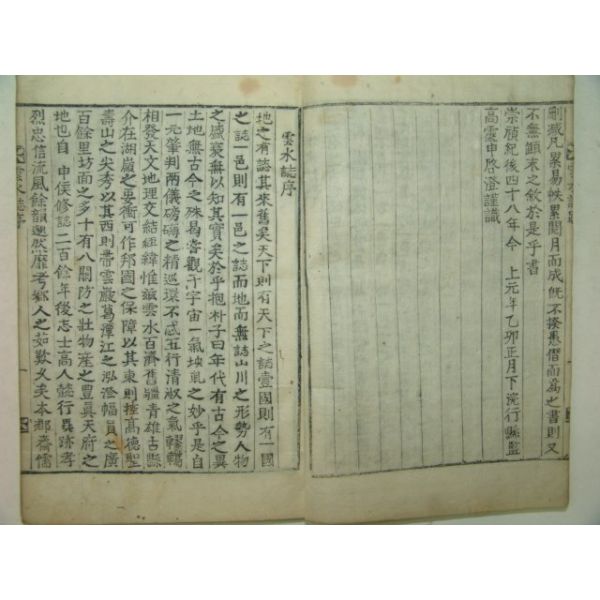 刪蔵凡累易帙累閱月而成旣不揆愚僭而爲之書則又
不無顚末之敘於是乎書
崇禎紀後四十八年今 上元年乙卯正月下浣行縣監
高靈申啓澄謹識
雲水誌序
地之有誌其來舊矣天下則有天下之誌壹國則有一國
之誌一邑則有一邑之誌而地而無誌山川之形勢人物
之盛衰無以知其實矣於乎抱朴子曰年代有古今之異
土地無古今之殊曷嘗觀于宇宙一氣坱軋之妙乎是自
一元肇判兩儀磅礴之精巡環不忒五行清淑之氣轇轕
相發天文地理文結經緯惟玆雲水百濟舊疆青雄古縣
介在湖嶺之要衝可作邦國之保障以其東則揷高德聖
壽山之尖秀以其西則帶雲巖葛潭江之泓澄幅員之廣
百餘里坊面之多十有八關防之壯物産之豊眞天府之
地也自 申侯修誌二百餘年後志士高人懿行異跡孝
烈忠信流風餘韻邈然靡考鄉人之茹歎久矣本郡齋儒
雲水誌序